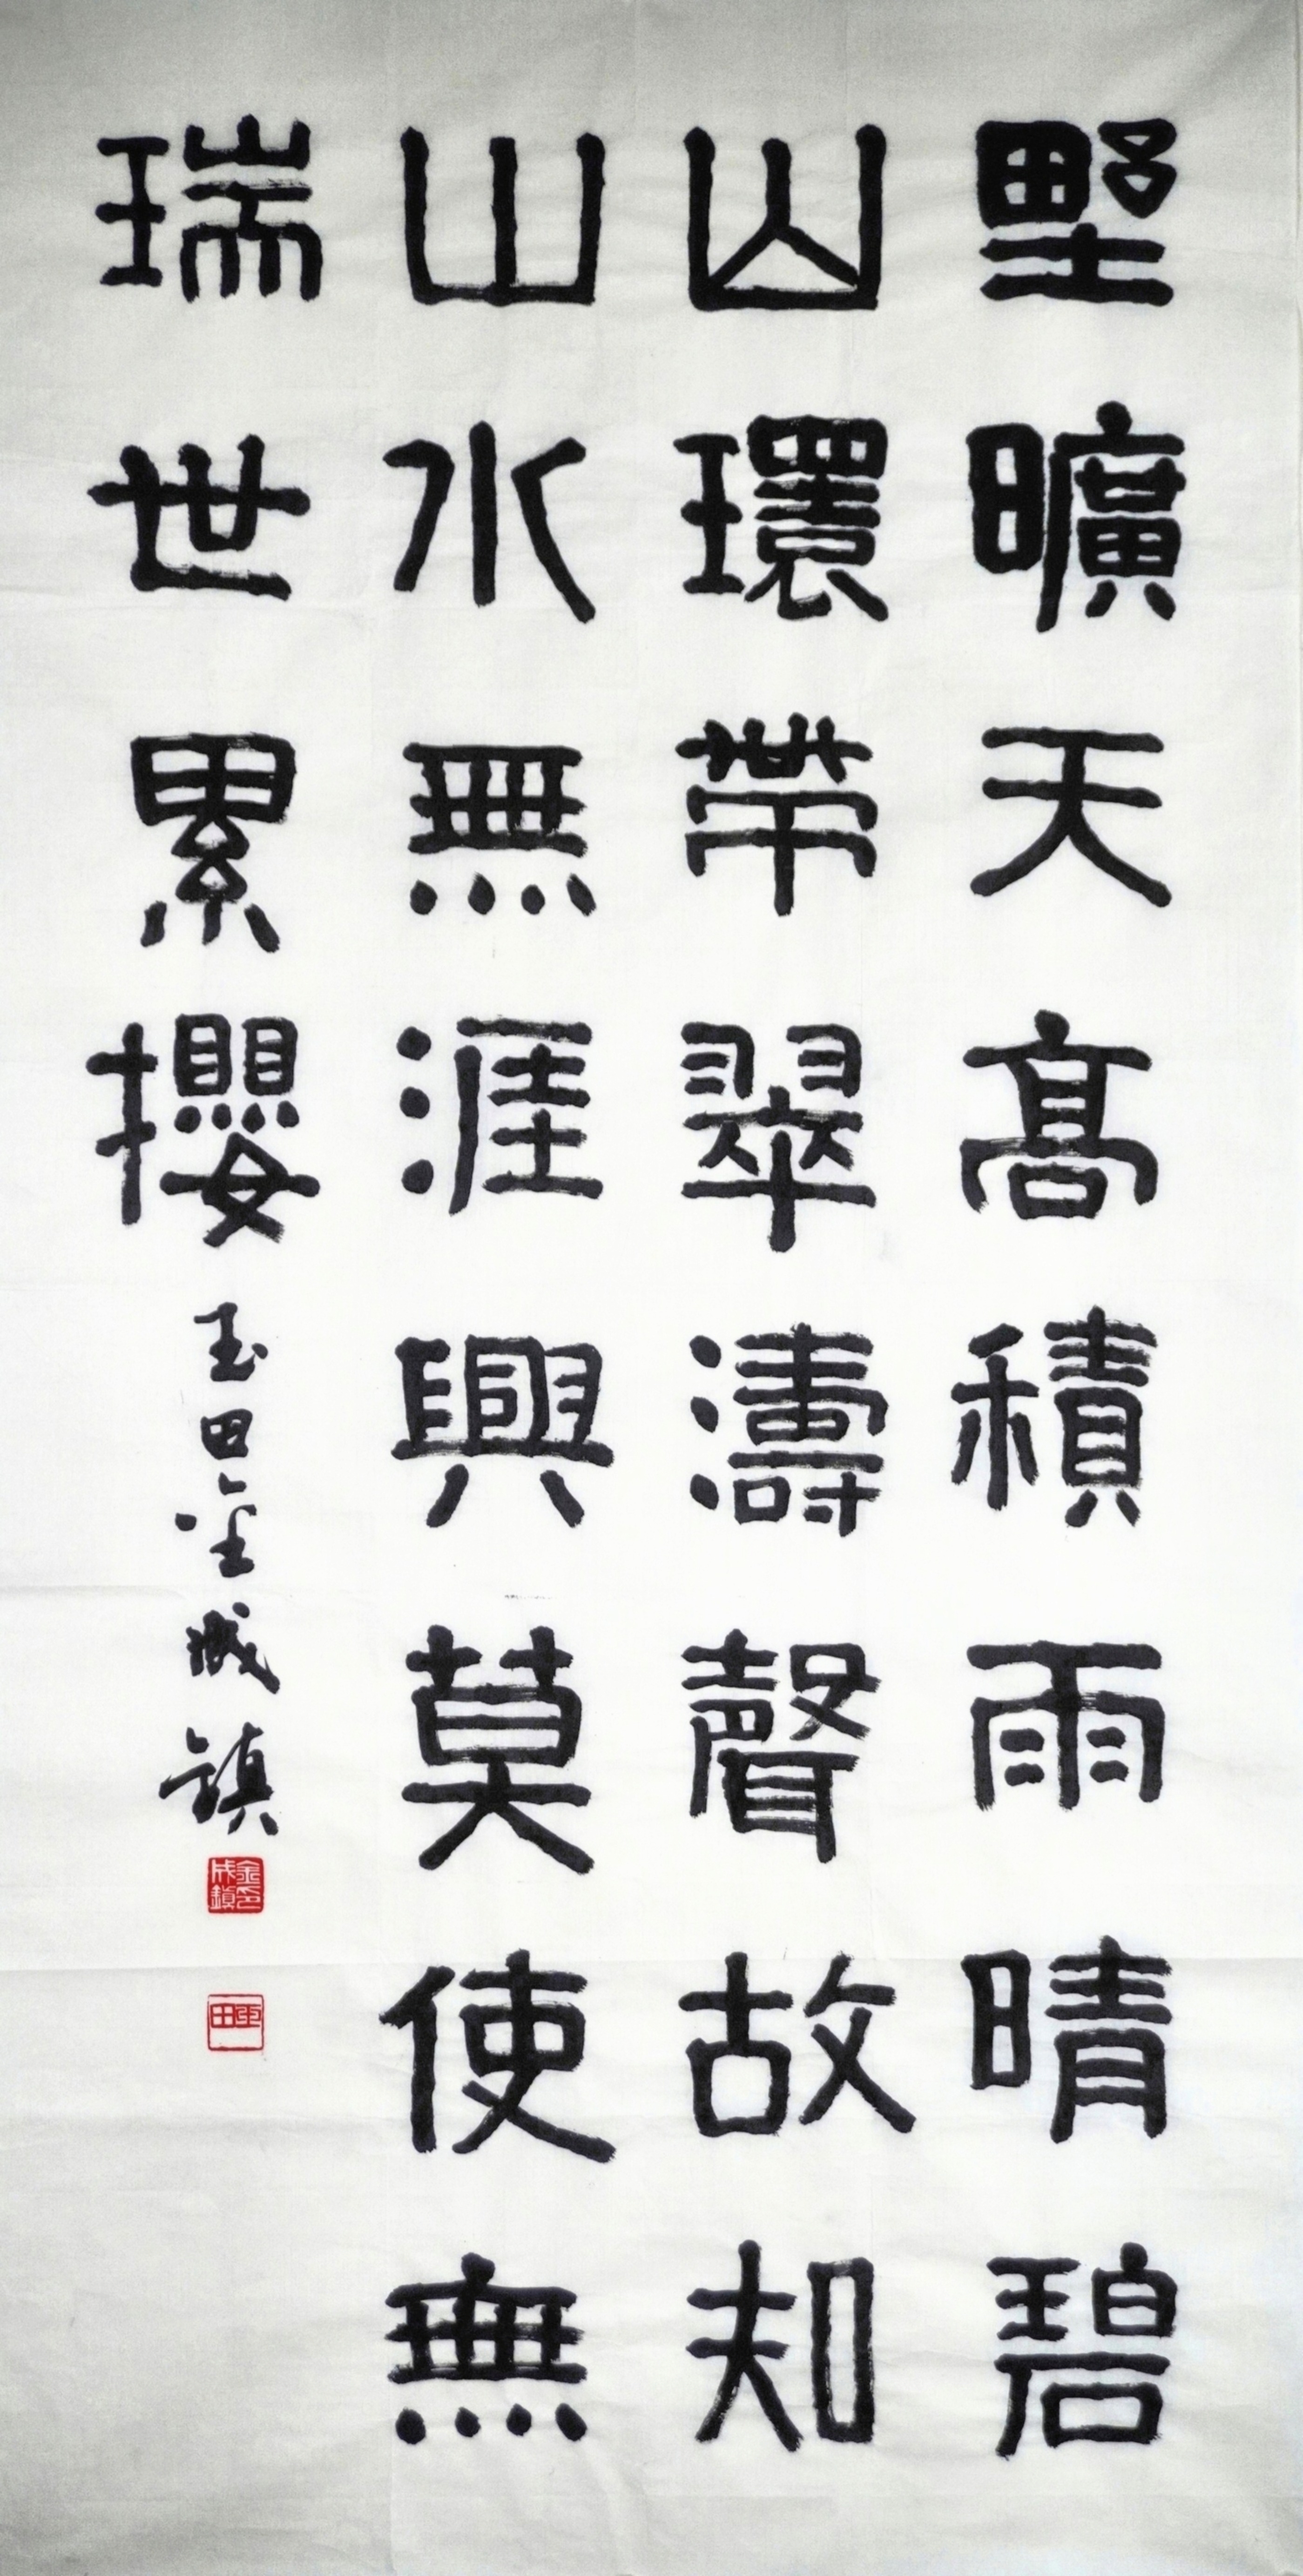 野曠天高積雨晴碧
山環帶翠濤聲故知
山水無涯興莫使無
瑞世累攖
玉田金成鎮
金成鎮印
玉田